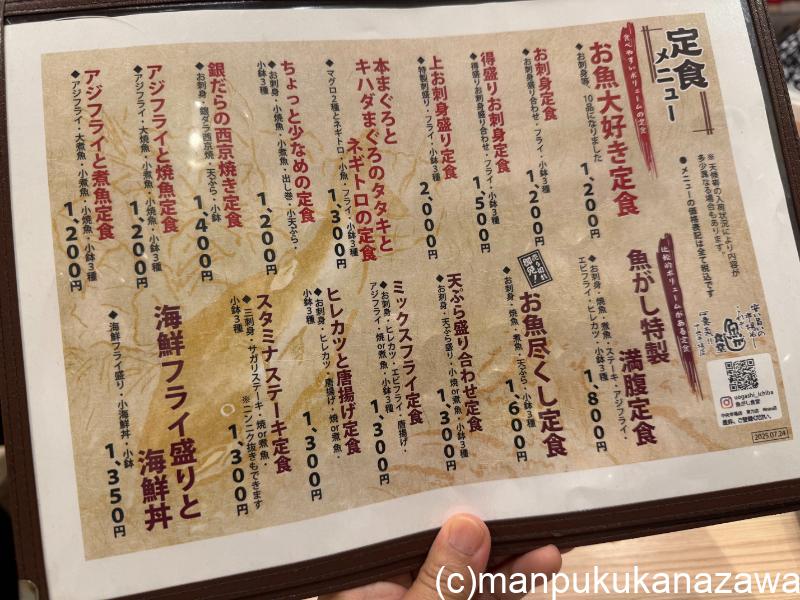 定食
メニュー
※天候等の入荷状況により内容が
多少異なる場合もあります。
●メニューの価格表記は全て税込です
食べやすいボリュームの定食
お魚大好き定食
●お刺身等、10品になりました
1,200円
お刺身定食
お刺身盛り合わせ・フライ・小鉢3種
1,200円
得盛りお刺身定食
得盛りお刺身盛り合わせ・フライ・小鉢3種
1,500円
上お刺身盛り定食
●特製刺盛り・フライ・小鉢3種
2,000円
本まぐろと
キハダまぐろのタタキと
ネギトロの定食
●マグロ2種とネギトロ・小魚・フライ・小鉢3種
1,300円
ちょっと少なめの定食
●お刺身・小焼魚・小煮魚・出し巻・小天ぷら・
小鉢3種
1,200円
銀だらの西京焼き定食
●お刺身・銀ダラ西京焼・天ぷら・小鉢
1,400円
アジフライと焼魚定食
●アジフライ・大焼魚・小煮魚・小焼魚・小鉢3種
1,200円
アジフライと煮魚定食
●アジフライ・大煮魚・小煮魚・小焼魚・小鉢3種
1,200円
比較的ボリュームがある定食
魚がし特製
満腹定食
●お刺身・焼魚・煮魚・ステーキ・アジフライ・
エビフライ・ヒレカツ・小鉢3種
1,800円
売り切れ
御免!
お魚尽くし定食
●お刺身・焼魚・煮魚・天ぷら・小鉢
1,600円
天ぷら盛り合わせ定食
●お刺身・天ぷら盛り・小焼or煮魚・小鉢3種
1,300円
ミックスフライ定食
●お刺身・ヒレカツ・エビフライ・唐揚げ・
アジフライ・焼or煮魚・小鉢3種
1,300円
ヒレカツと唐揚げ定食
●お刺身・ヒレカツ・唐揚げ・焼or煮魚・
小鉢3種
1,300円
スタミナステーキ定食
●三刺身・サガリステーキ・焼or煮魚・
小鉢3種
※ニンニク抜きもできます
1,300円
海鮮フライ盛りと
海鮮丼
●海鮮フライ盛り・小海鮮丼・小鉢
1,350円
食堂
uogashi_ichiba
魚がし食堂
2025.07.24
(c)manpukukanazawa